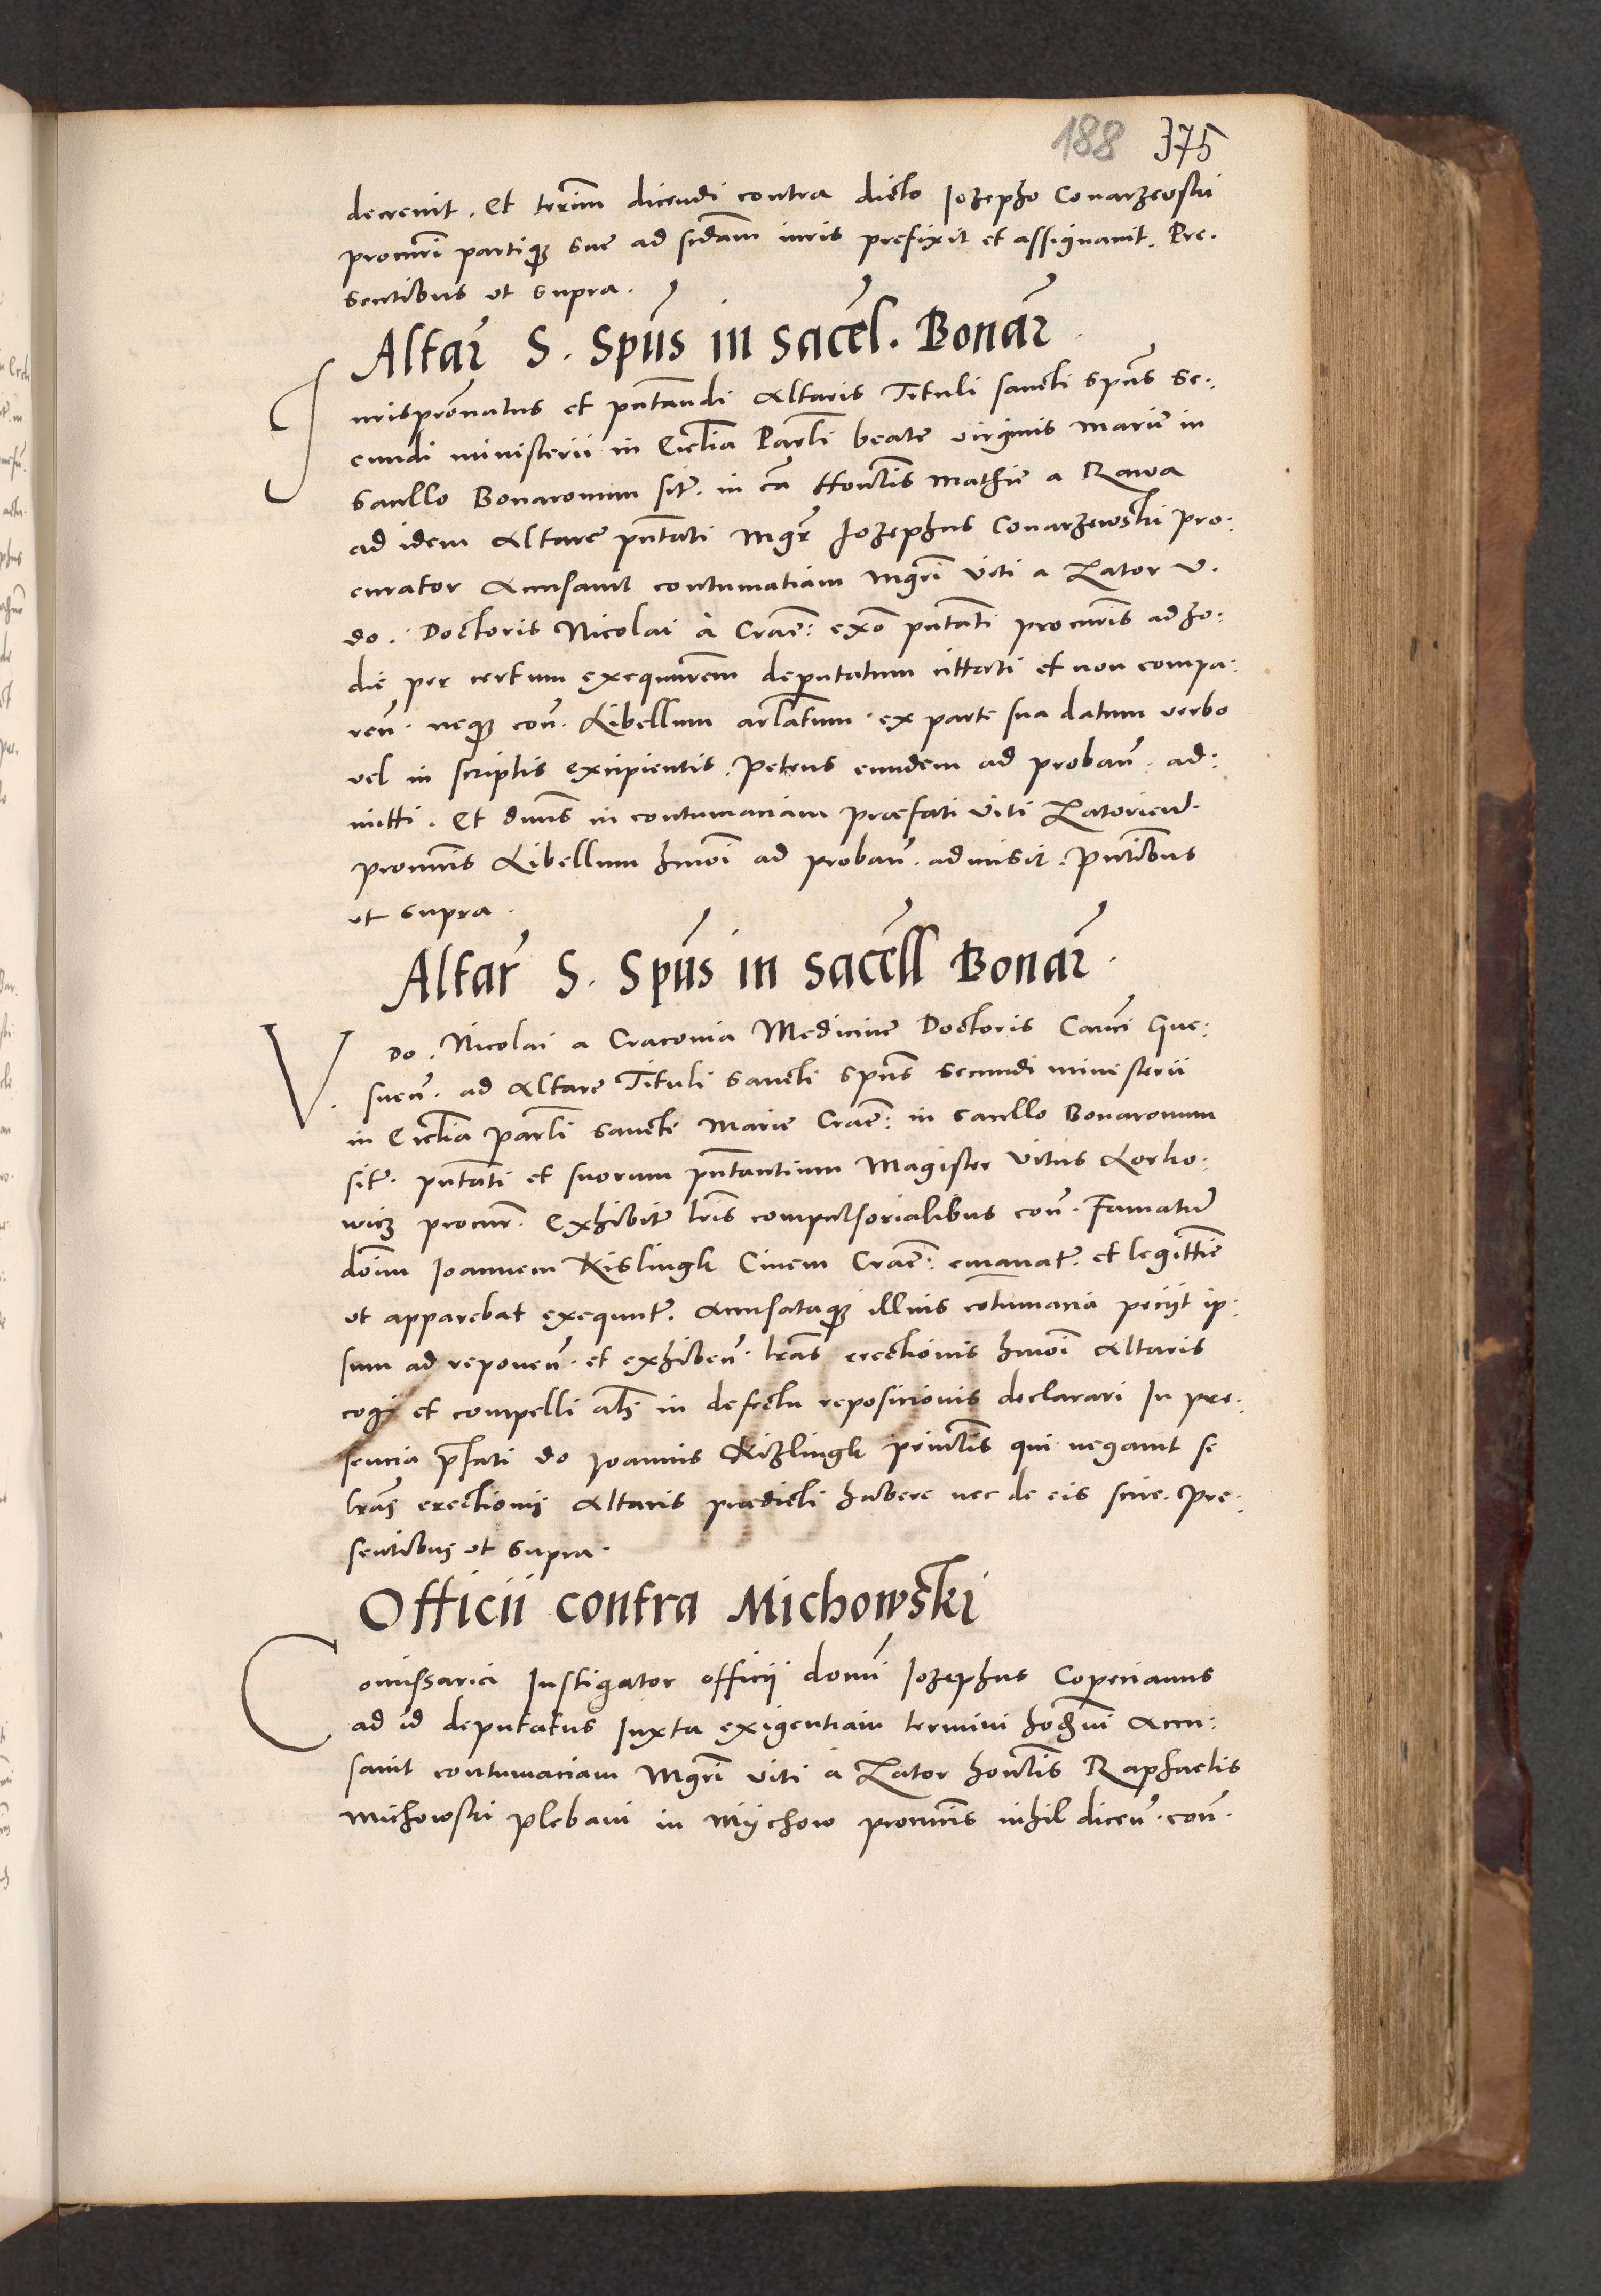 188 375
decrevit. Et terim dicendi contra dicto Iozepho Conarzewski
procurri partiqz sue ad scdam iuris prefixit et assignavit. Pre.
sentibus ut supra.
Altar S. Spus in sacel. Bonar
Iurispronatus et pntandi Altaris Tituli sancti spus se:
cundi ministerii in Ecclia Parli beate virginis Marie in
sacello Bonaronum sit. in ca Hontis Mathie a Rawa
ad idem Altare pntati Mgr Iozephus Conarzewski pro:
curator Accusavit contumatiam Mgri Viti a Zator V.
do. Doctoris Nicolai a Crac: exo pntati procuris ad ho:
die per certum exequutrem deputatum cittati et non compa:
ren. neqz con. Libellum arlatum ex parte sua datum verbo
vel in scriptis excipientis. Petens eundem ad proban. ad:
mitti. Et dnus in contumaciam praefati Viti Zatorien.
procuris Libellum hmoi ad proban. admisit. Pntibus
ut supra.
Altar S. Spus in sacell Bonar
V. Do. Nicolai a Cracovia Medicine Doctoris Canci Gne:
snen. ad Altare Tituli sancti spus secundi ministerii
in Ecclia parli sancte Marie Crac: in sacello Bonaronum
sit. pntati et suorum pntantium Magister Vitus Lorko:
wicz procur. Exhibit lris compulsorialibus con. Famatu
donu Ioannem Kislingk Civem Crac: emanat. et legittie
ut apparebat exequut. Accusataqz illius cotumacia peciit ip:
sum ad reponen. et exhiben. lras erectionis hmoi Altaris
cogi et compelli als in defectu reposicionis declarari In pre:
sencia pfati do Joannis Kizlingk principlis qui negavit se
lras erectionis Altaris praedicti habere nec de eis scire. Pre:
sentibus ut supra.
Officii contra Michowski
Comissarici Instigator officii domi Iozephus Coperianus
ad id deputatus Iuxta exigentiam termini hodierni Accu:
savit contumaciam Mgri Viti a Zator hontis Raphaelis
Michowski plebani in Mychow procuris nihil dicen. con.